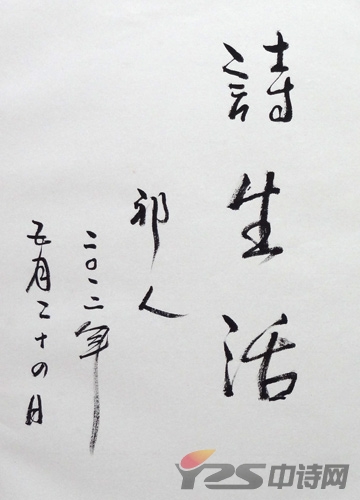 詩生活
祁人
二〇一二年
五月二十四日
YZS中诗网